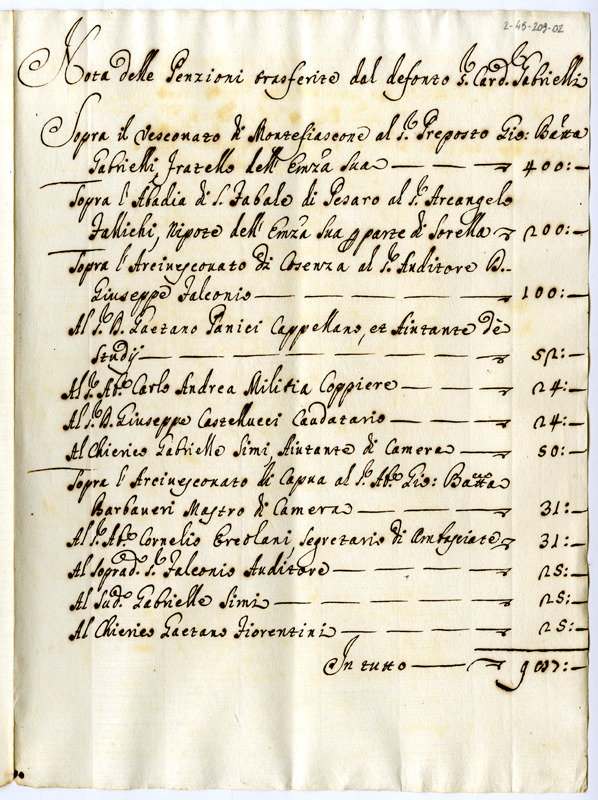 2-45-209-02
Nota delle Penzioni trasferite dal defonto S. Card. Gabrielli
Sopra il Vescovato di Montefiascone al S.r Preposto Gio: Batta
Gabrielli, fratello dell' Emza Sua — 400:—
Sopra l'Abadia di S. Fabale di Pesaro al S.r Arcangelo
Fallichi, Nipote dell' Emza Sua p parte di Sorella 200:—
Sopra l'Arcivescovato di Cosenza al S.r Auditore D.
Giuseppe Falconio — 100:—
Al S.r D. Gaetano Panici Cappellano, et Aiutante dè
Studij — 52:—
Al S.r Ab.e Carlo Andrea Militia Coppiere — 24:—
Al S.r D. Giuseppe Castellucci Caudatario — 24:—
Al Chierico Gabrielle Simi, Aiutante di Camera — 50:—
Sopra l'Arcivescovato di Capua al S.r Ab.e Gio: Batta
Barbaveri Mastro di Camera — 31:—
Al S.r Ab.e Cornelio Ercolani Segretario di Ambasciate 31:—
Al Soprad.o S.r Falconio Auditore — 25:—
Al Sud.o Gabrielle Simi — 25:—
Al Chierico Gaetano Fiorentini — 25:—
In tutto — 987:—